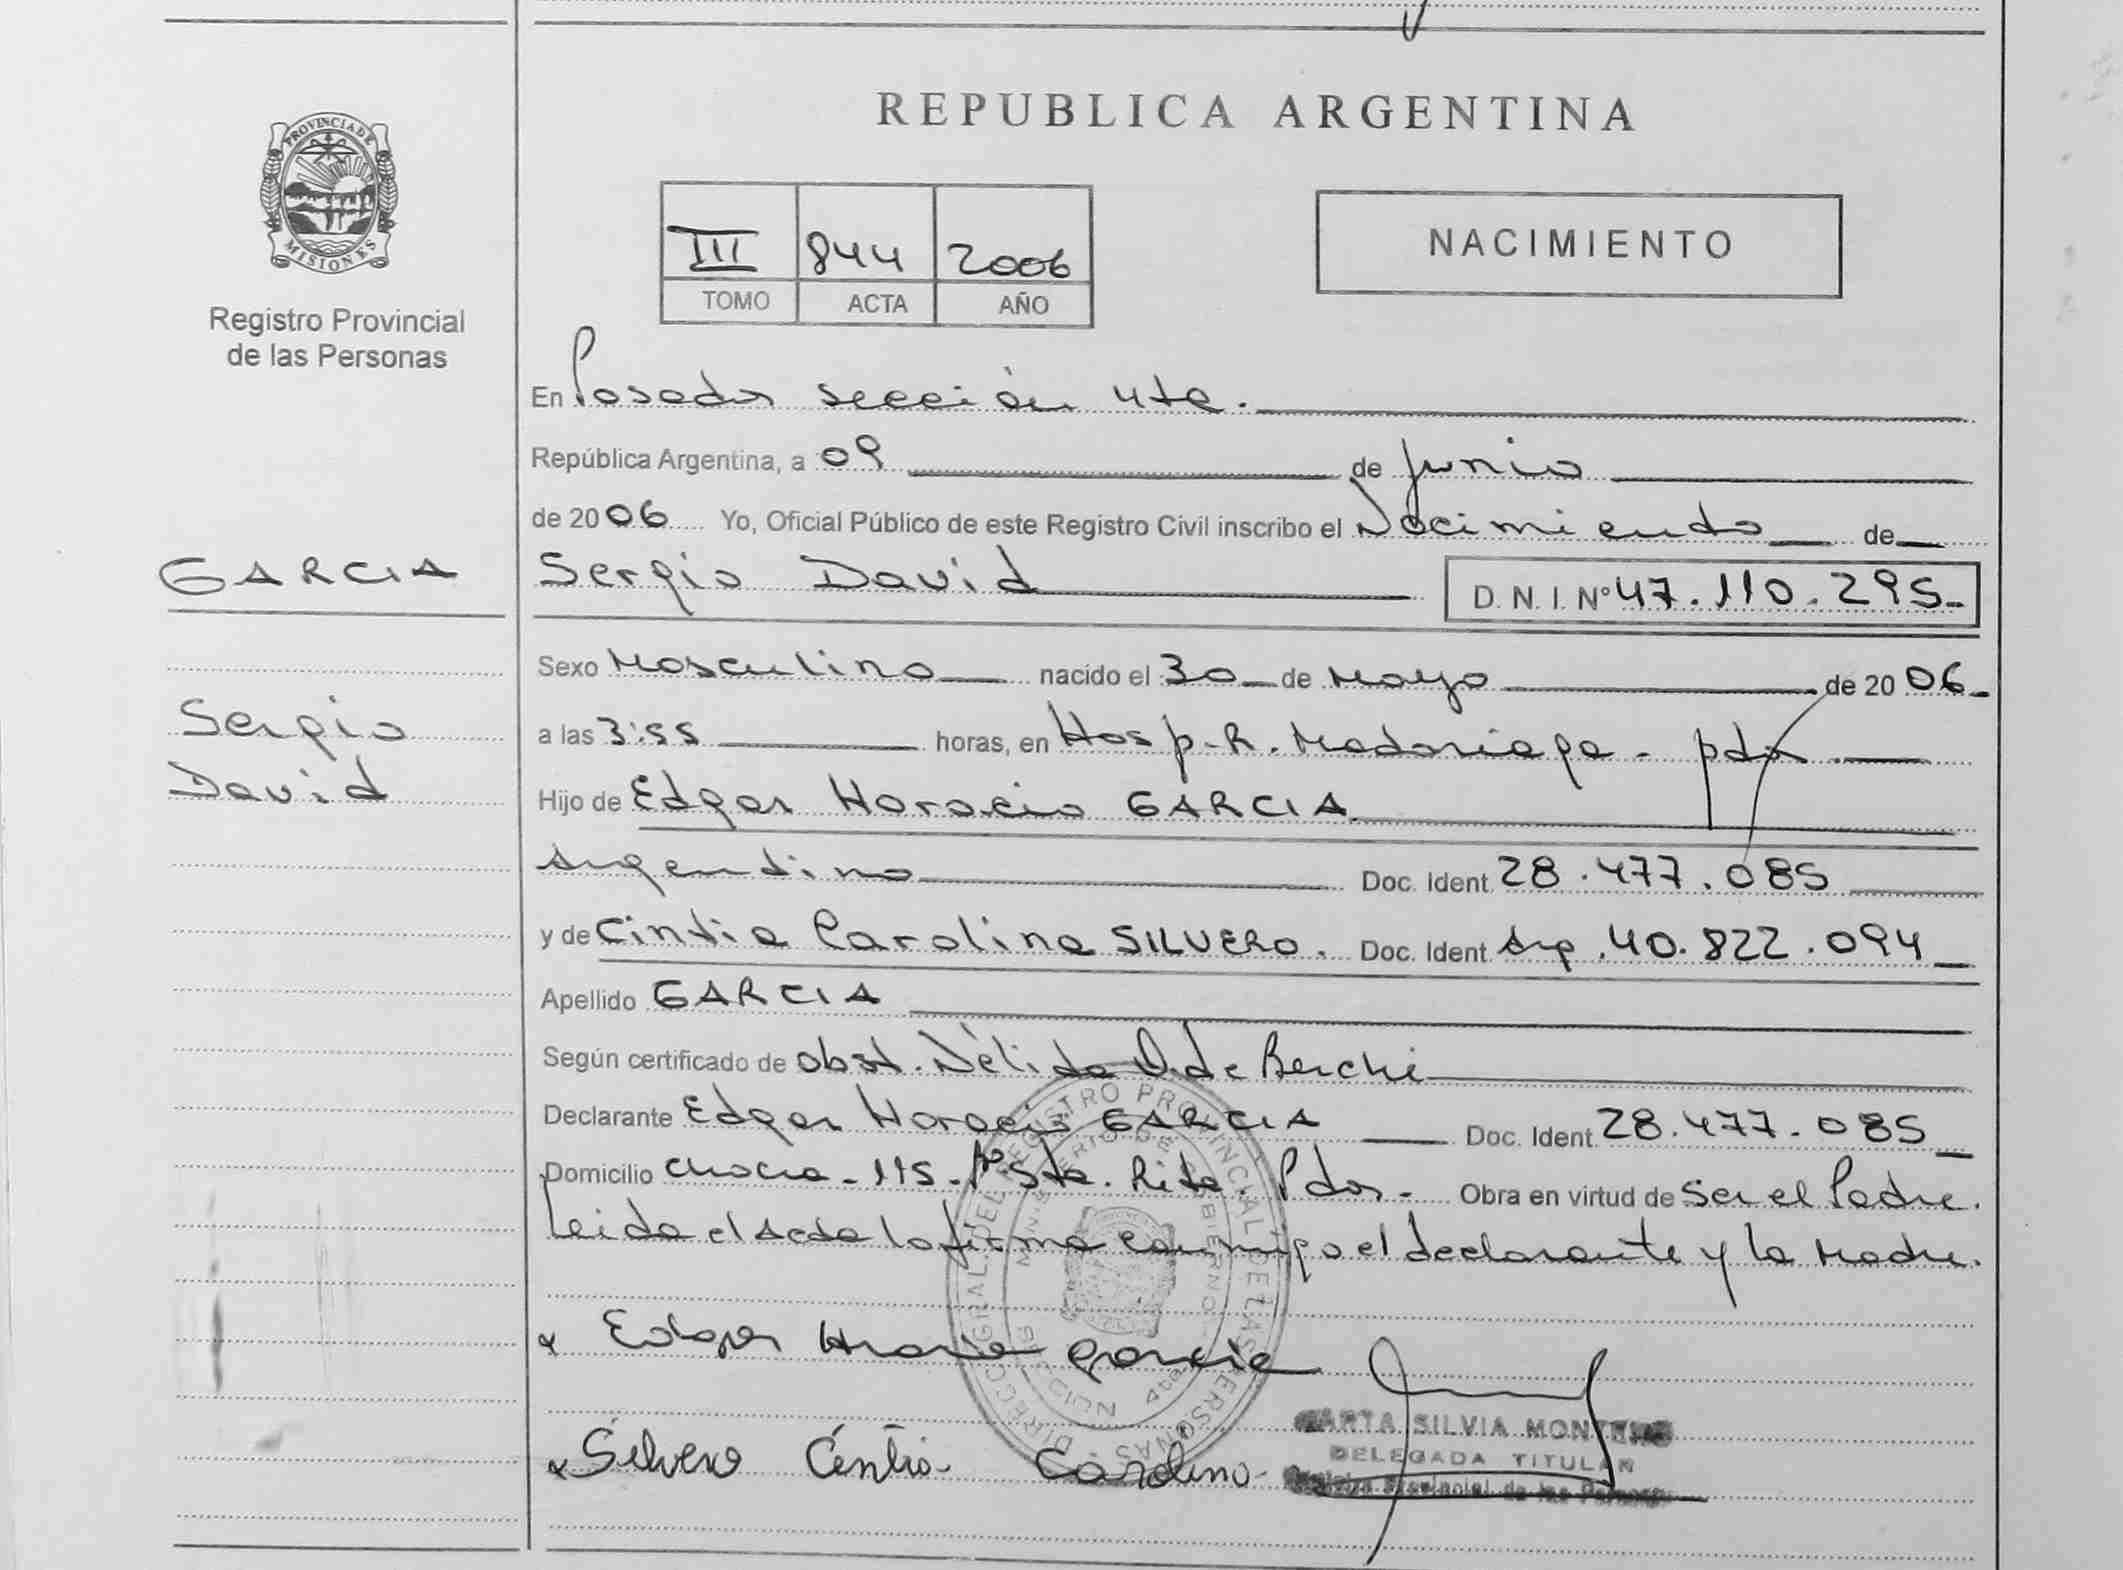 REPUBLICA ARGENTINA
PROVINCIA DE
MISIONES
Registro Provincial
de las Personas
III 844 2006
TOMO ACTA AÑO
NACIMIENTO
En Posadas sección 4ta.
República Argentina, a 09 de Junio
de 2006 Yo, Oficial Público de este Registro Civil inscribo el Nacimiento de
GARCIA
Sergio David D. N. I. Nº 47.110.295
Sexo Masculino nacido el 30 de Mayo de 2006
Sergio
David
a las 3:55 horas, en Hosp. R. Madariaga - pdas
Hijo de Edgar Horacio GARCIA
Argentino Doc. Ident 28.477.085
y de Cintia Carolina SILVERO. Doc. Ident Arg. 40.822.094
Apellido GARCIA
Según certificado de obst. Nélida D. de Berchi
Declarante Edgar Horacio GARCIA Doc. Ident. 28.477.085
Domicilio 115 Sta. Rita. Pdas. Obra en virtud de Ser el Padre.
Leida el Acta la firma conmigo el declarante y la Madre.
DIRECC. GRAL. DEL REGISTRO PROVINCIAL DE LAS PERSONAS
MINISTERIO DE GOBIERNO
SECCION 4ta
Edgar Horacio Garcia
Silvero Cintia Carolina
SILVIA
DELEGADA TITULAR
Provincial de las